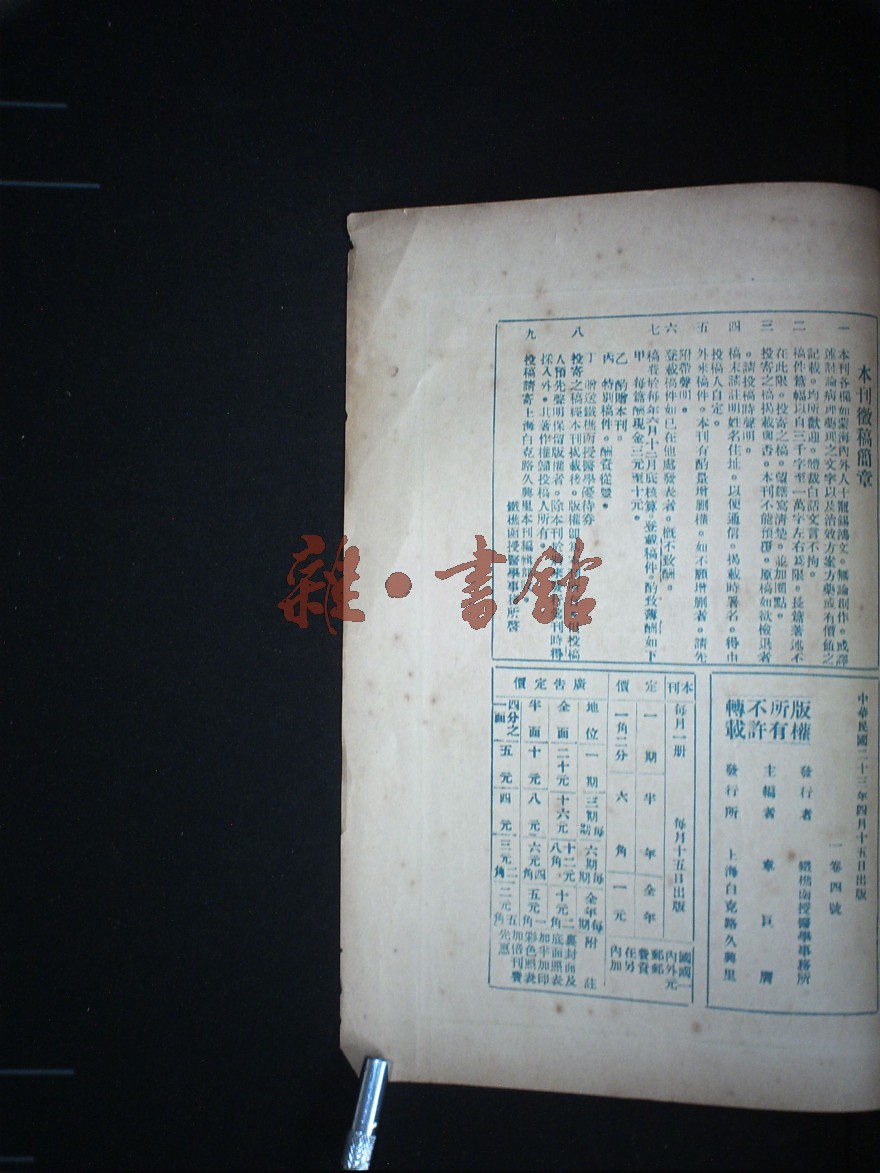 本刊徵稿簡章
一 本刊各欄如蒙海內外人士寵錫鴻文。無論創作。或譯
述討論病理藥理之文字以及治效方案方藥或有價值之
記載。均所歡迎。體裁白話文言不拘。
二 稿件篇幅以自三千字至一萬字左右爲限。長篇著述不
在此限。投寄之稿。望繕寫清楚。並加圈點。
三 投寄之稿揭載與否。本刊不能預覆。原稿如欲檢退者
。請投稿時聲明。
四 稿末請註明姓名住址。以便通信。揭載時署名。得由
投稿人自定。
五 外來稿件。本刊有酌量增删權。如不願增删者。請先
附帶聲明。
六 登載稿件如已在他處發表者。概不致酬。
七 稿我於每年六月十二月底核算。登載稿件。酌致薄酬如下
甲 每篇酬現金三元至十元。
乙 酌贈本刊。
丙 特別稿件。酬資從豐。
丁 贈送鐵樵函授醫學優待券
八 投寄之稿經本刊揭載後。版權卽 投稿
人預先聲明保留版權者。除本刊 刊時得
採入外。其著作權歸投稿人所有。
九 投稿請寄上海白克路久興里本刊編輯部
鐵樵函授醫學事務所啓
中華民國二十三年四月十五日出版
一卷四號
版權所有不許轉載
發行者 鐵樵函授醫學事務所
主編者 章巨膺
發行所 上海白克路久興里
本刊定價
每月一册 每月十五日出版
一期 半年 全年
一角二分 六角 一元
國內郵費在內
國外郵資另加一元
廣告定價
地位 一期 三期每期 六期每期 全年每期 附註
全面 二十元 十六元 十二元八角 十元二角
半面 十元 八元 六元四角 五元一角
四分之一面 五元 四元 三元二角 二元五角
裏封面及底面照表加半加印彩色照表加倍刊費先惠
雜·書館